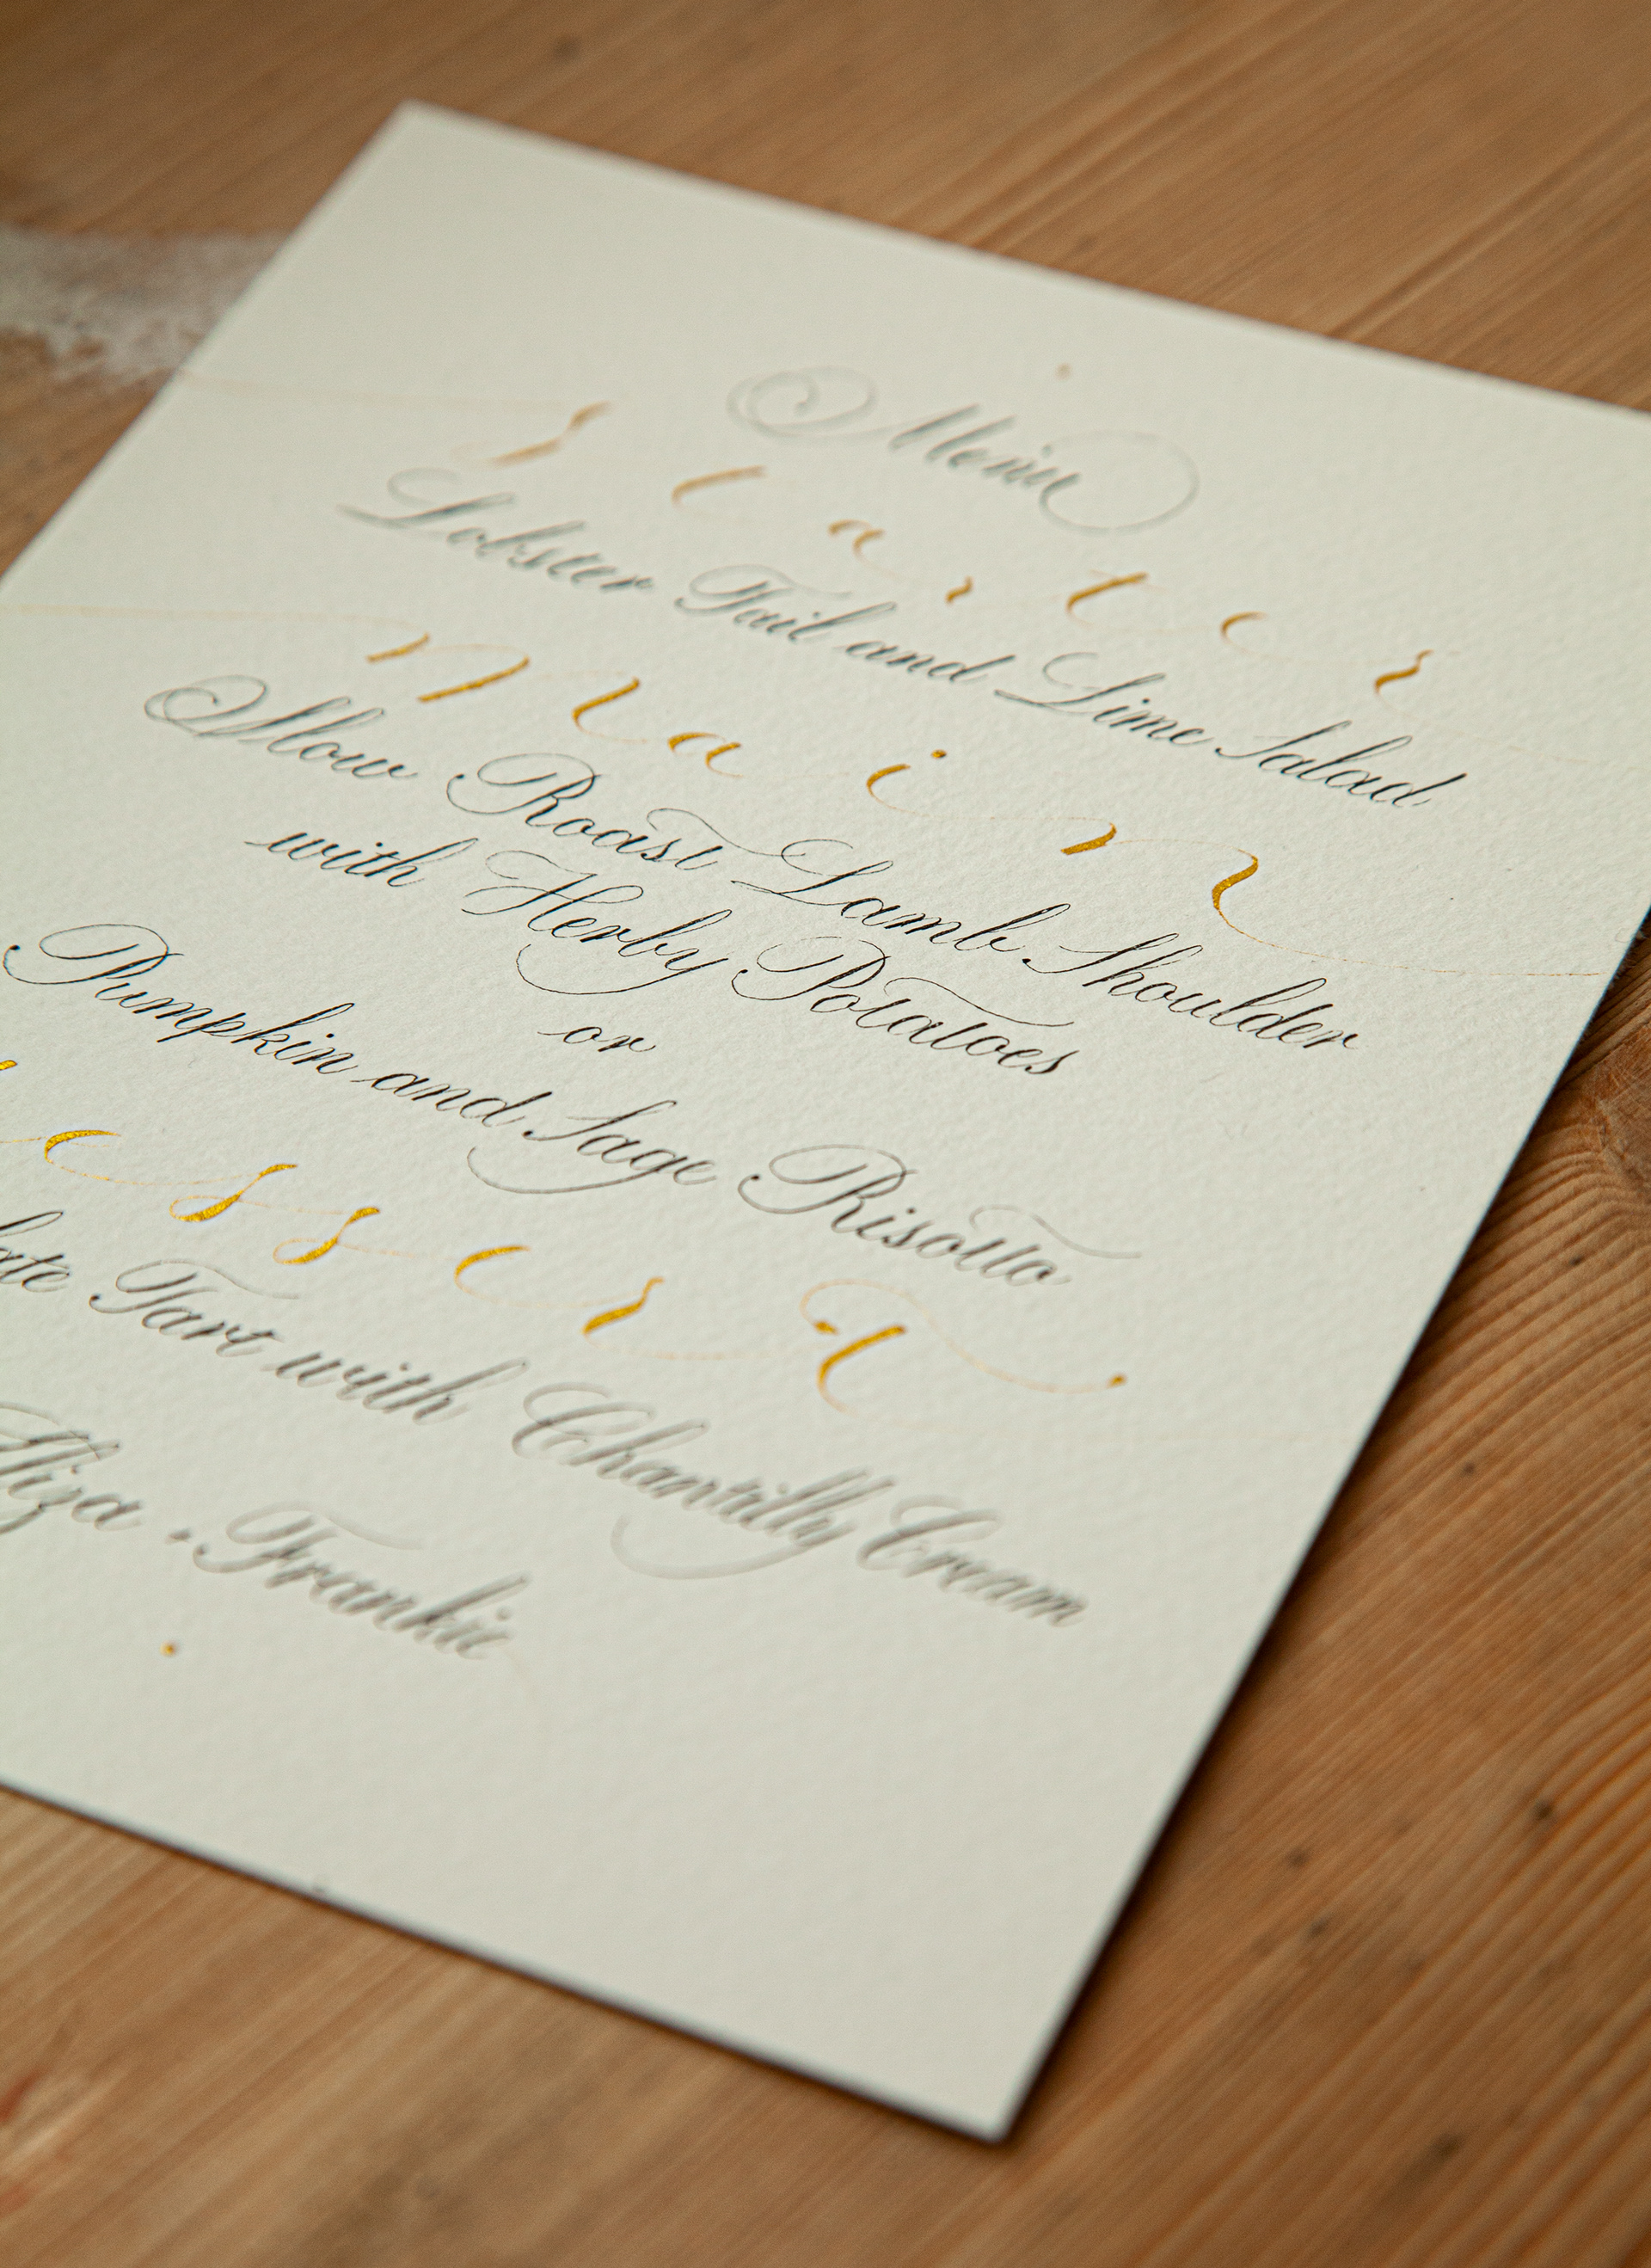 Menu
starter
Lobster Tail and Lime Salad
main
Slow Roast Lamb Shoulder
with Herby Potatoes
or
Pumpkin and Sage Risotto
essert
late Tart with Chantilly Cream
liza . Frankie